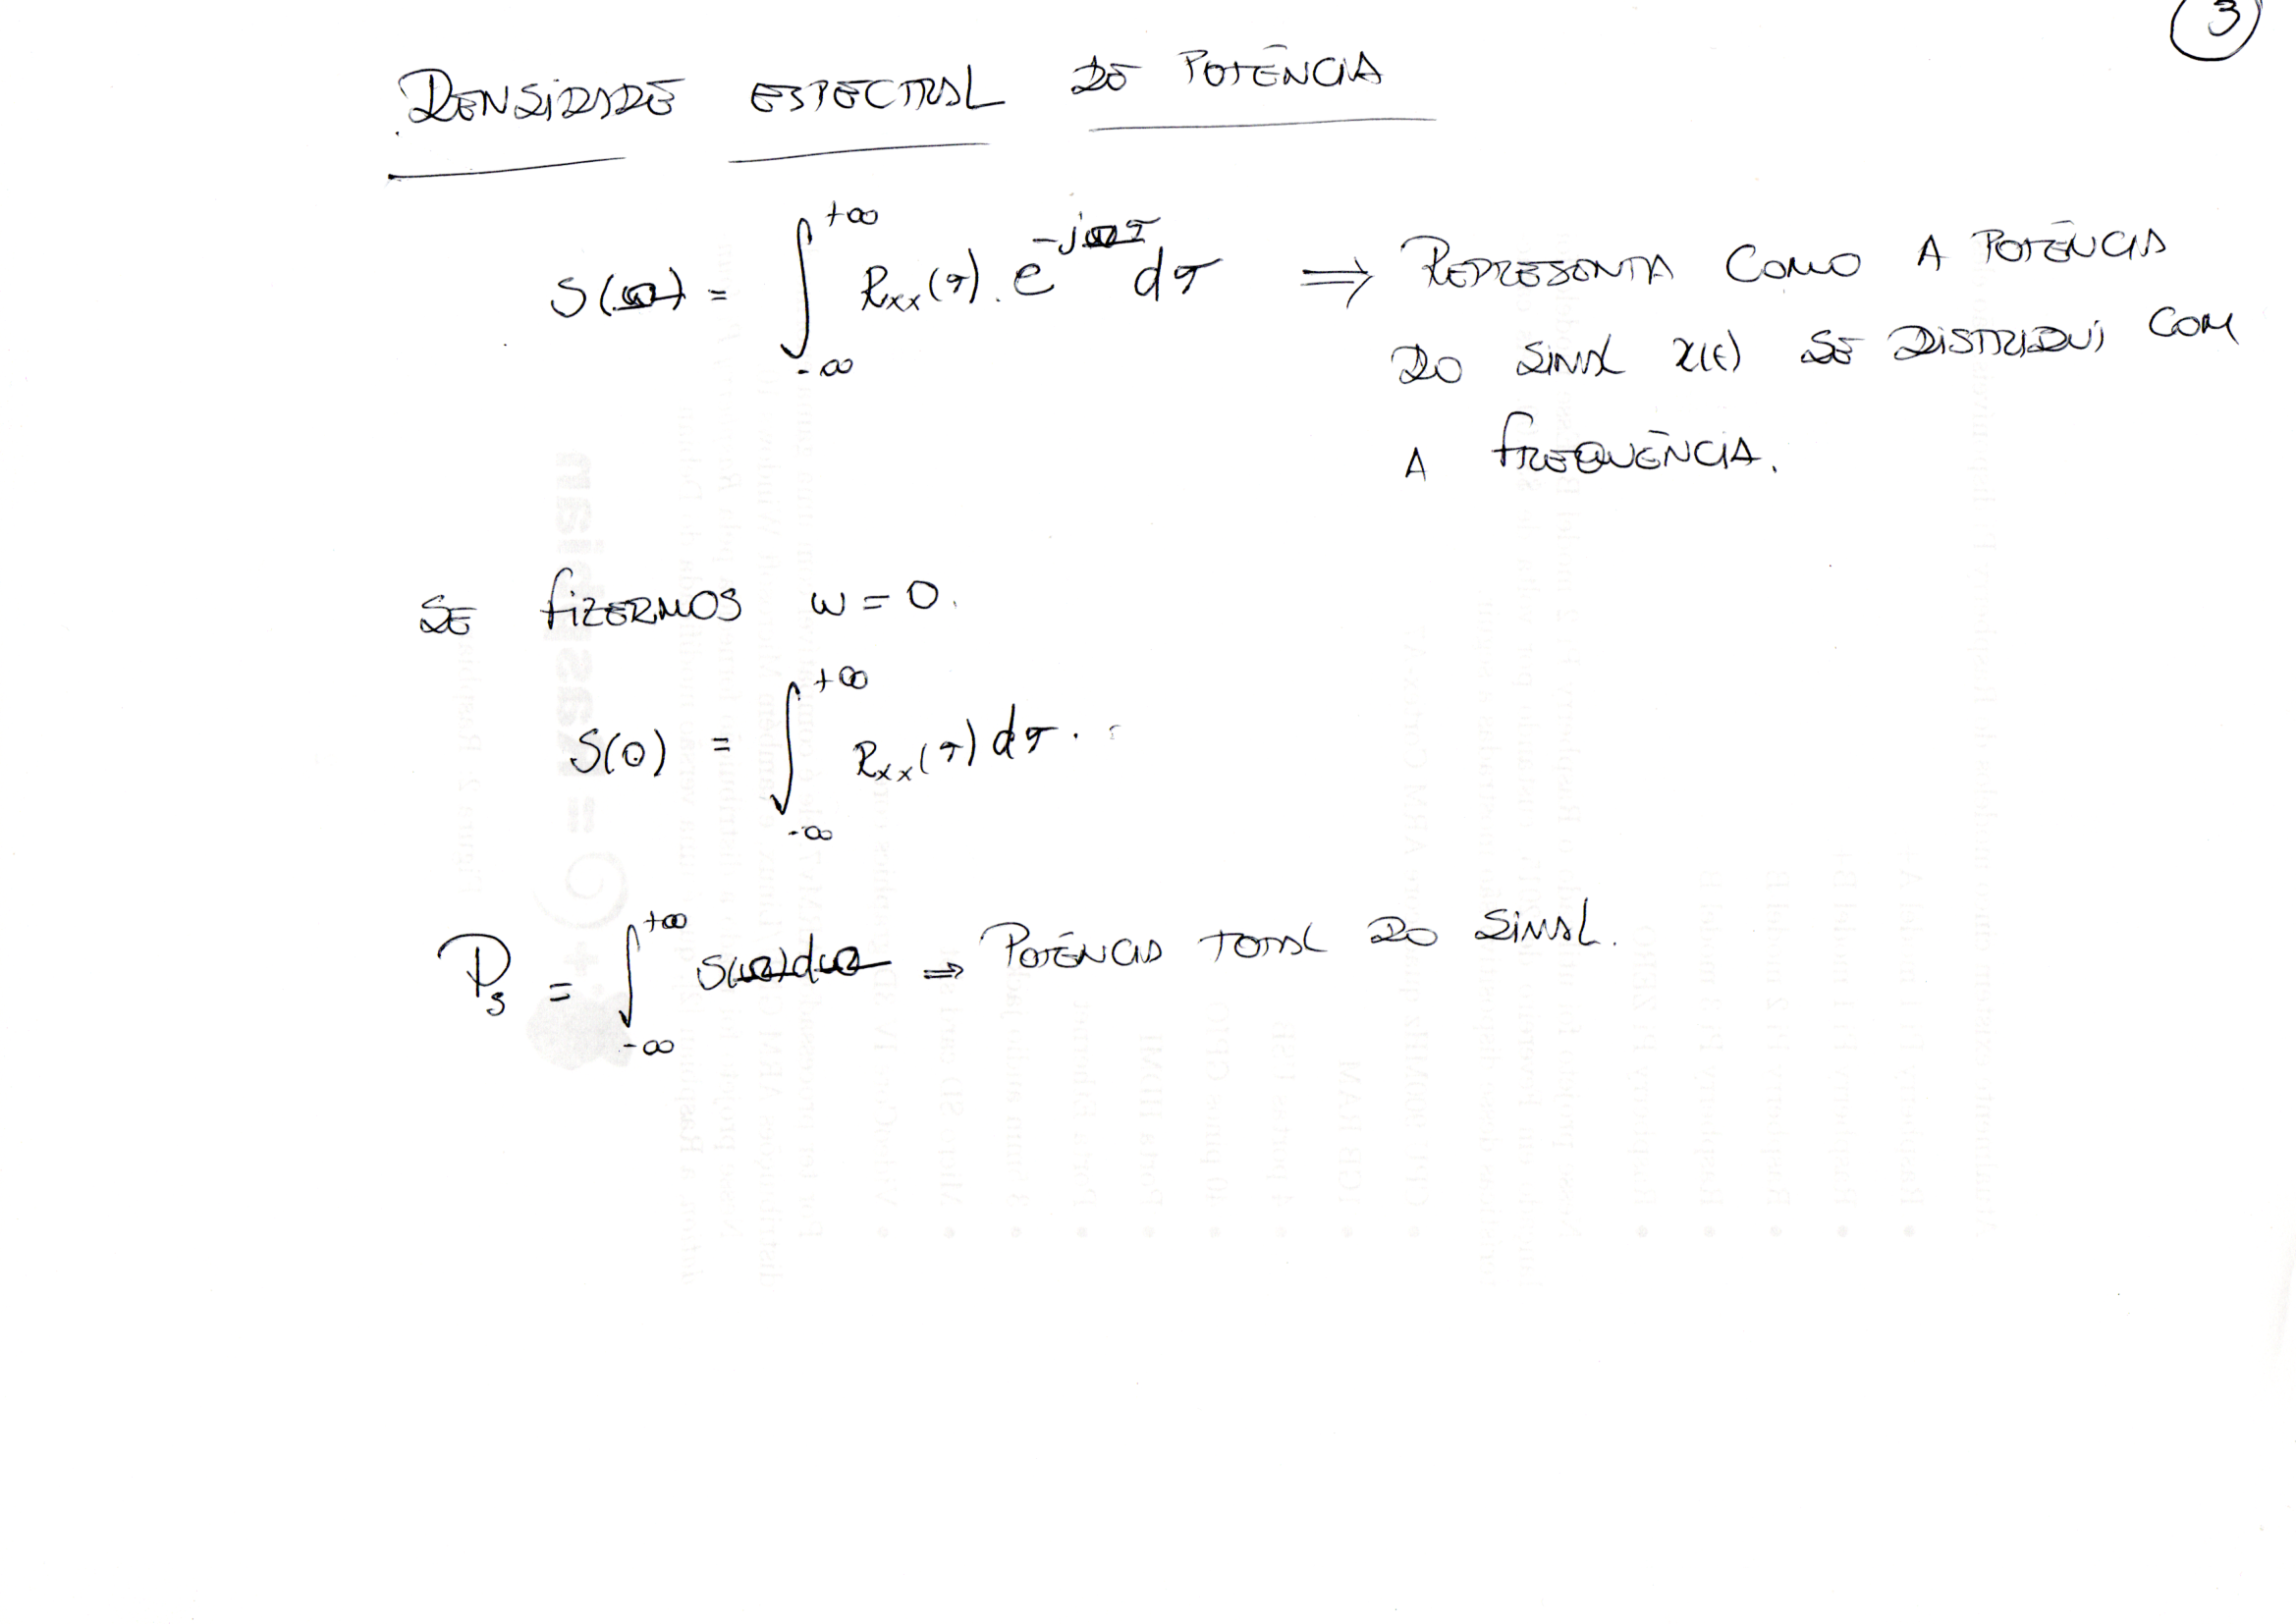 3
DENSIDADE ESPECTRAL DE POTÊNCIA
S(ω) = ∫_{-∞}^{+∞} Rxx(τ) . e^{-jωτ} dτ ⇒ REPRESENTA COMO A POTÊNCIA
DO SINAL x(t) SE DISTRIBUI COM
A FREQUÊNCIA.
SE FIZERMOS ω = 0.
S(0) = ∫_{-∞}^{+∞} Rxx(τ) dτ.
Ps = ∫_{-∞}^{+∞} S(ω)dω ⇒ POTÊNCIA TOTAL DO SINAL.